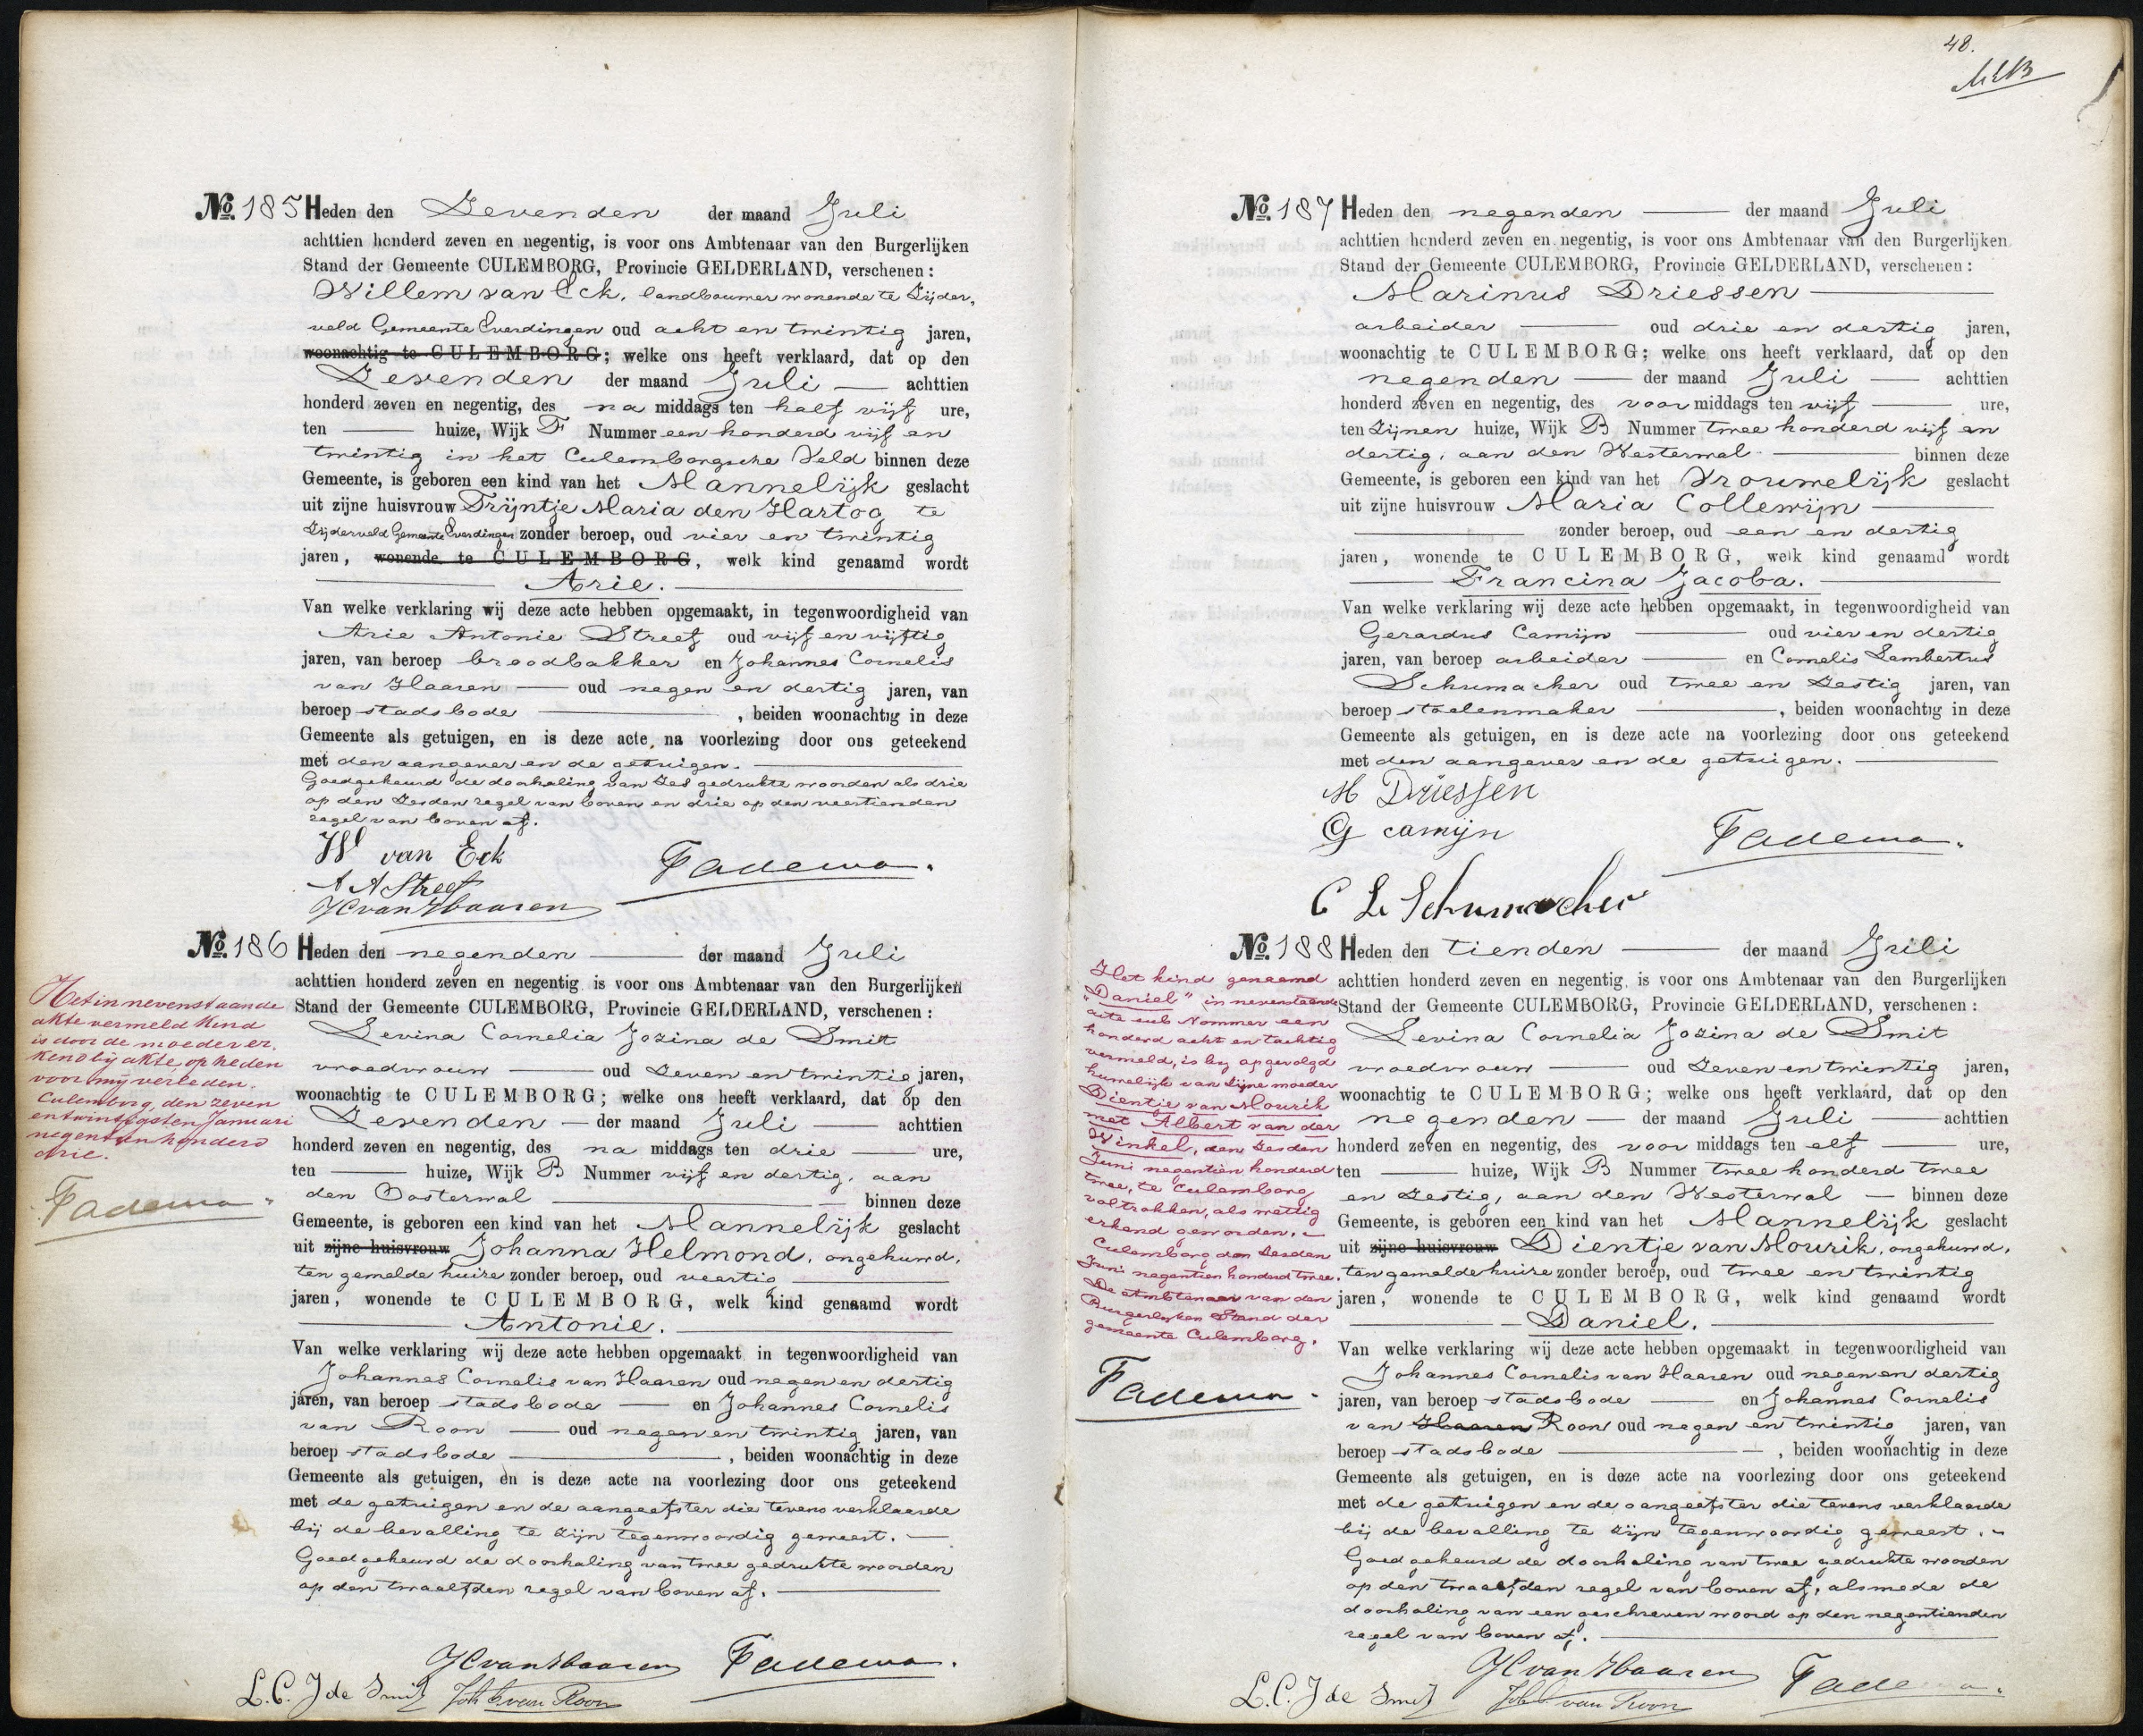 No. 185 Heden den Zevenden der maand Juli
achttien honderd zeven en negentig, is voor ons Ambtenaar van den Burgerlijken
Stand der Gemeente CULEMBORG, Provincie GELDERLAND, verschenen:
Willem van Eck, landbouwer wonende te Zijder,
veld Gemeente Everdingen oud acht en twintig jaren,
woonachtig te CULEMBORG; welke ons heeft verklaard, dat op den
Zevenden der maand Juli achttien
honderd zeven en negentig, des na middags ten half vijf ure,
ten huize, Wijk F Nummer een honderd vijf en
twintig in het Culemborgsche Veld binnen deze
Gemeente, is geboren een kind van het Mannelijk geslacht
uit zijne huisvrouw Trijntje Maria den Hartog te
Zijderveld Gemeente Everdingen zonder beroep, oud vier en twintig
jaren, wonende te CULEMBORG, welk kind genaamd wordt
Arie.
Van welke verklaring wij deze acte hebben opgemaakt, in tegenwoordigheid van
Arie Antonie Streef oud vijf en vijftig
jaren, van beroep broodbakker en Johannes Cornelis
van Haaren oud negen en dertig jaren, van
beroep stadsbode, beiden woonachtig in deze
Gemeente als getuigen, en is deze acte na voorlezing door ons geteekend
met den aangever en de getuigen.
Goedgekeurd de doorhaling van zes gedrukte woorden als drie
op den zesden regel van boven en drie op den veertienden
regel van boven af.
W van Eck
Fadema.
A A Streef
JC van Haaren
No. 186 Heden den negenden der maand Juli
achttien honderd zeven en negentig is voor ons Ambtenaar van den Burgerlijken
Stand der Gemeente CULEMBORG, Provincie GELDERLAND, verschenen:
Levina Cornelia Jozina de Smit
vroedvrouw oud zeven en twintig jaren,
woonachtig te CULEMBORG; welke ons heeft verklaard, dat op den
Zevenden der maand Juli achttien
honderd zeven en negentig, des na middags ten drie ure,
ten huize, Wijk B Nummer vijf en dertig, aan
den Oosterwal binnen deze
Gemeente, is geboren een kind van het Mannelijk geslacht
uit zijne huisvrouw Johanna Helmond, ongehuwd,
ten gemelde huize zonder beroep, oud veertig
jaren, wonende te CULEMBORG, welk kind genaamd wordt
Antonie.
Van welke verklaring wij deze acte hebben opgemaakt in tegenwoordigheid van
Johannes Cornelis van Haaren oud negen en dertig
jaren, van beroep stadsbode en Johannes Cornelis
van Roon oud negen en twintig jaren, van
beroep stadsbode, beiden woonachtig in deze
Gemeente als getuigen, en is deze acte na voorlezing door ons geteekend
met de getuigen en de aangeefster die tevens verklaarde
bij de bevalling te zijn tegenwoordig geweest.
Goedgekeurd de doorhaling van twee gedrukte woorden
op den twaalfden regel van boven af.
JC van Haaren Fadema.
L. C. J de Smit Joh C van Roon
Het in nevenstaande
akte vermeld kind
is door de moeder er,
kend bij akte, op heden
voor mij verleden.
Culemborg, den zeven
en twintigsten Januari
negentien honderd
drie.
Fadema.
48.
No. 187 Heden den negenden der maand Juli
achttien honderd zeven en negentig, is voor ons Ambtenaar van den Burgerlijken
Stand der Gemeente CULEMBORG, Provincie GELDERLAND, verschenen:
Marinus Driessen
arbeider oud drie en dertig jaren,
woonachtig te CULEMBORG; welke ons heeft verklaard, dat op den
negenden der maand Juli achttien
honderd zeven en negentig, des voor middags ten vijf ure,
ten zijnen huize, Wijk B Nummer twee honderd vijf en
dertig, aan den Westerwal binnen deze
Gemeente, is geboren een kind van het Vrouwelijk geslacht
uit zijne huisvrouw Maria Collewijn
zonder beroep, oud een en dertig
jaren, wonende te CULEMBORG, welk kind genaamd wordt
Francina Jacoba.
Van welke verklaring wij deze acte hebben opgemaakt, in tegenwoordigheid van
Gerardus Camijn oud vier en dertig
jaren, van beroep arbeider en Cornelis Lambertus
Schumacher oud twee en zestig jaren, van
beroep stoelenmaker, beiden woonachtig in deze
Gemeente als getuigen, en is deze acte na voorlezing door ons geteekend
met den aangever en de getuigen.
M Driessen
G camijn
Fadema.
C L Schumacher
No. 188 Heden den tienden der maand Juli
achttien honderd zeven en negentig, is voor ons Ambtenaar van den Burgerlijken
Stand der Gemeente CULEMBORG, Provincie GELDERLAND, verschenen:
Levina Cornelia Jozina de Smit
vroedvrouw oud zeven en twintig jaren,
woonachtig te CULEMBORG; welke ons heeft verklaard, dat op den
negenden der maand Juli achttien
honderd zeven en negentig, des voor middags ten elf ure,
ten huize, Wijk B Nummer twee honderd twee
en zestig, aan den Westerwal binnen deze
Gemeente, is geboren een kind van het Mannelijk geslacht
uit zijne huisvrouw Dientje van Mourik, ongehuwd,
ten gemelde huize zonder beroep, oud twee en twintig
jaren, wonende te CULEMBORG, welk kind genaamd wordt
Daniel.
Van welke verklaring wij deze acte hebben opgemaakt in tegenwoordigheid van
Johannes Cornelis van Haaren oud negen en dertig
jaren, van beroep stadsbode en Johannes Cornelis
van Haaren Roon oud negen en twintig jaren, van
beroep stadsbode, beiden woonachtig in deze
Gemeente als getuigen, en is deze acte na voorlezing door ons geteekend
met de getuigen en de aangeefster die tevens verklaarde
bij de bevalling te zijn tegenwoordig geweest.
Goedgekeurd de doorhaling van twee gedrukte woorden
op den twaalfden regel van boven af, alsmede de
doorhaling van een geschreven woord op den negentienden
regel van boven af.
JC van Haaren Fadema.
L. C. J de Smit Joh C van Roon
Het kind genaamd
"Daniel" in nevenstaande
acte sub Nommer een
honderd acht en tachtig
vermeld, is by opgevolgd
huwelijk van zijne moeder
Dientje van Mourik
met Albert van der
Winkel, den zesden
Juni negentien honderd
twee, te Culemborg
voltrokken, als wettig
erkend geworden.
Culemborg den zesden
Juni negentien honderd twee.
De Ambtenaar van den
Burgerlyken Stand der
gemeente Culemborg.
Fadema.